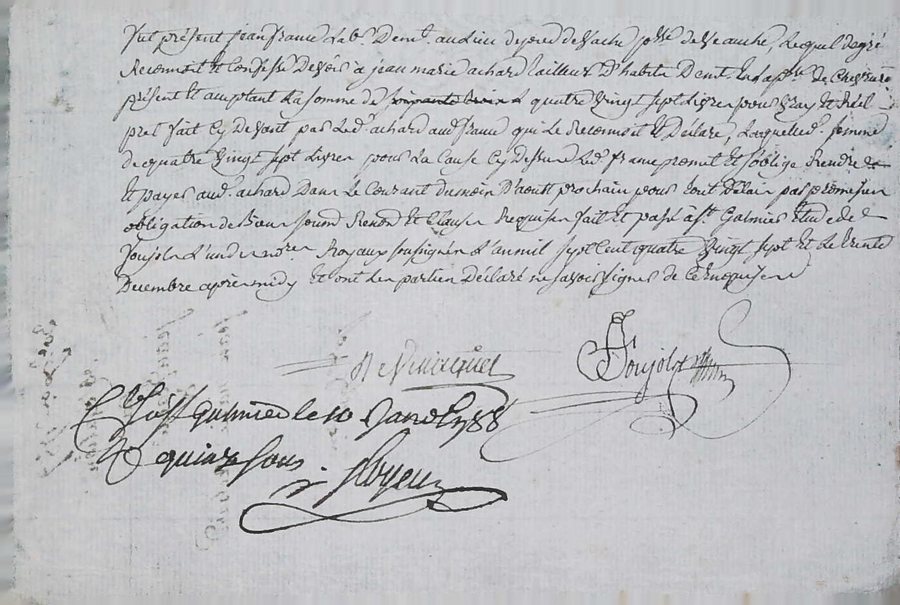 fut présent jean france lab.r Dem.t au lieu de de Vache p.sse de Veauche, lequel de gré
Reconnoit et Confesse Devoir à jean marie achard tailleur D'habits Dem.t en la p.sse de
présent et acceptant la somme de quatre vingt sept livres pour vray et réel
pret fait Cy devant par led. achard aud. france qui le Reconnoit et Déclare, Laquelle d. somme
de quatre vingt sept livres pour la Cause Cy dessus led. france promet et s'oblige Rendre
et payer aud. achard Dans le Courant du mois D'aoust prochain pour tout délai par promesse
obligation de Biens soum.s Renon.s et Clauses Requises fait et passé à S.t Galmier Etude de
Poujol L'un des no.res Royaux soussignés L'an mil sept Cent quatre vingt sept et le trente
Decembre après midy et ont les parties Déclaré ne savoir signer de Ce Requises
Poujol
C.lé à S.t galmier le 10 Janv. 1788
R quinze sous